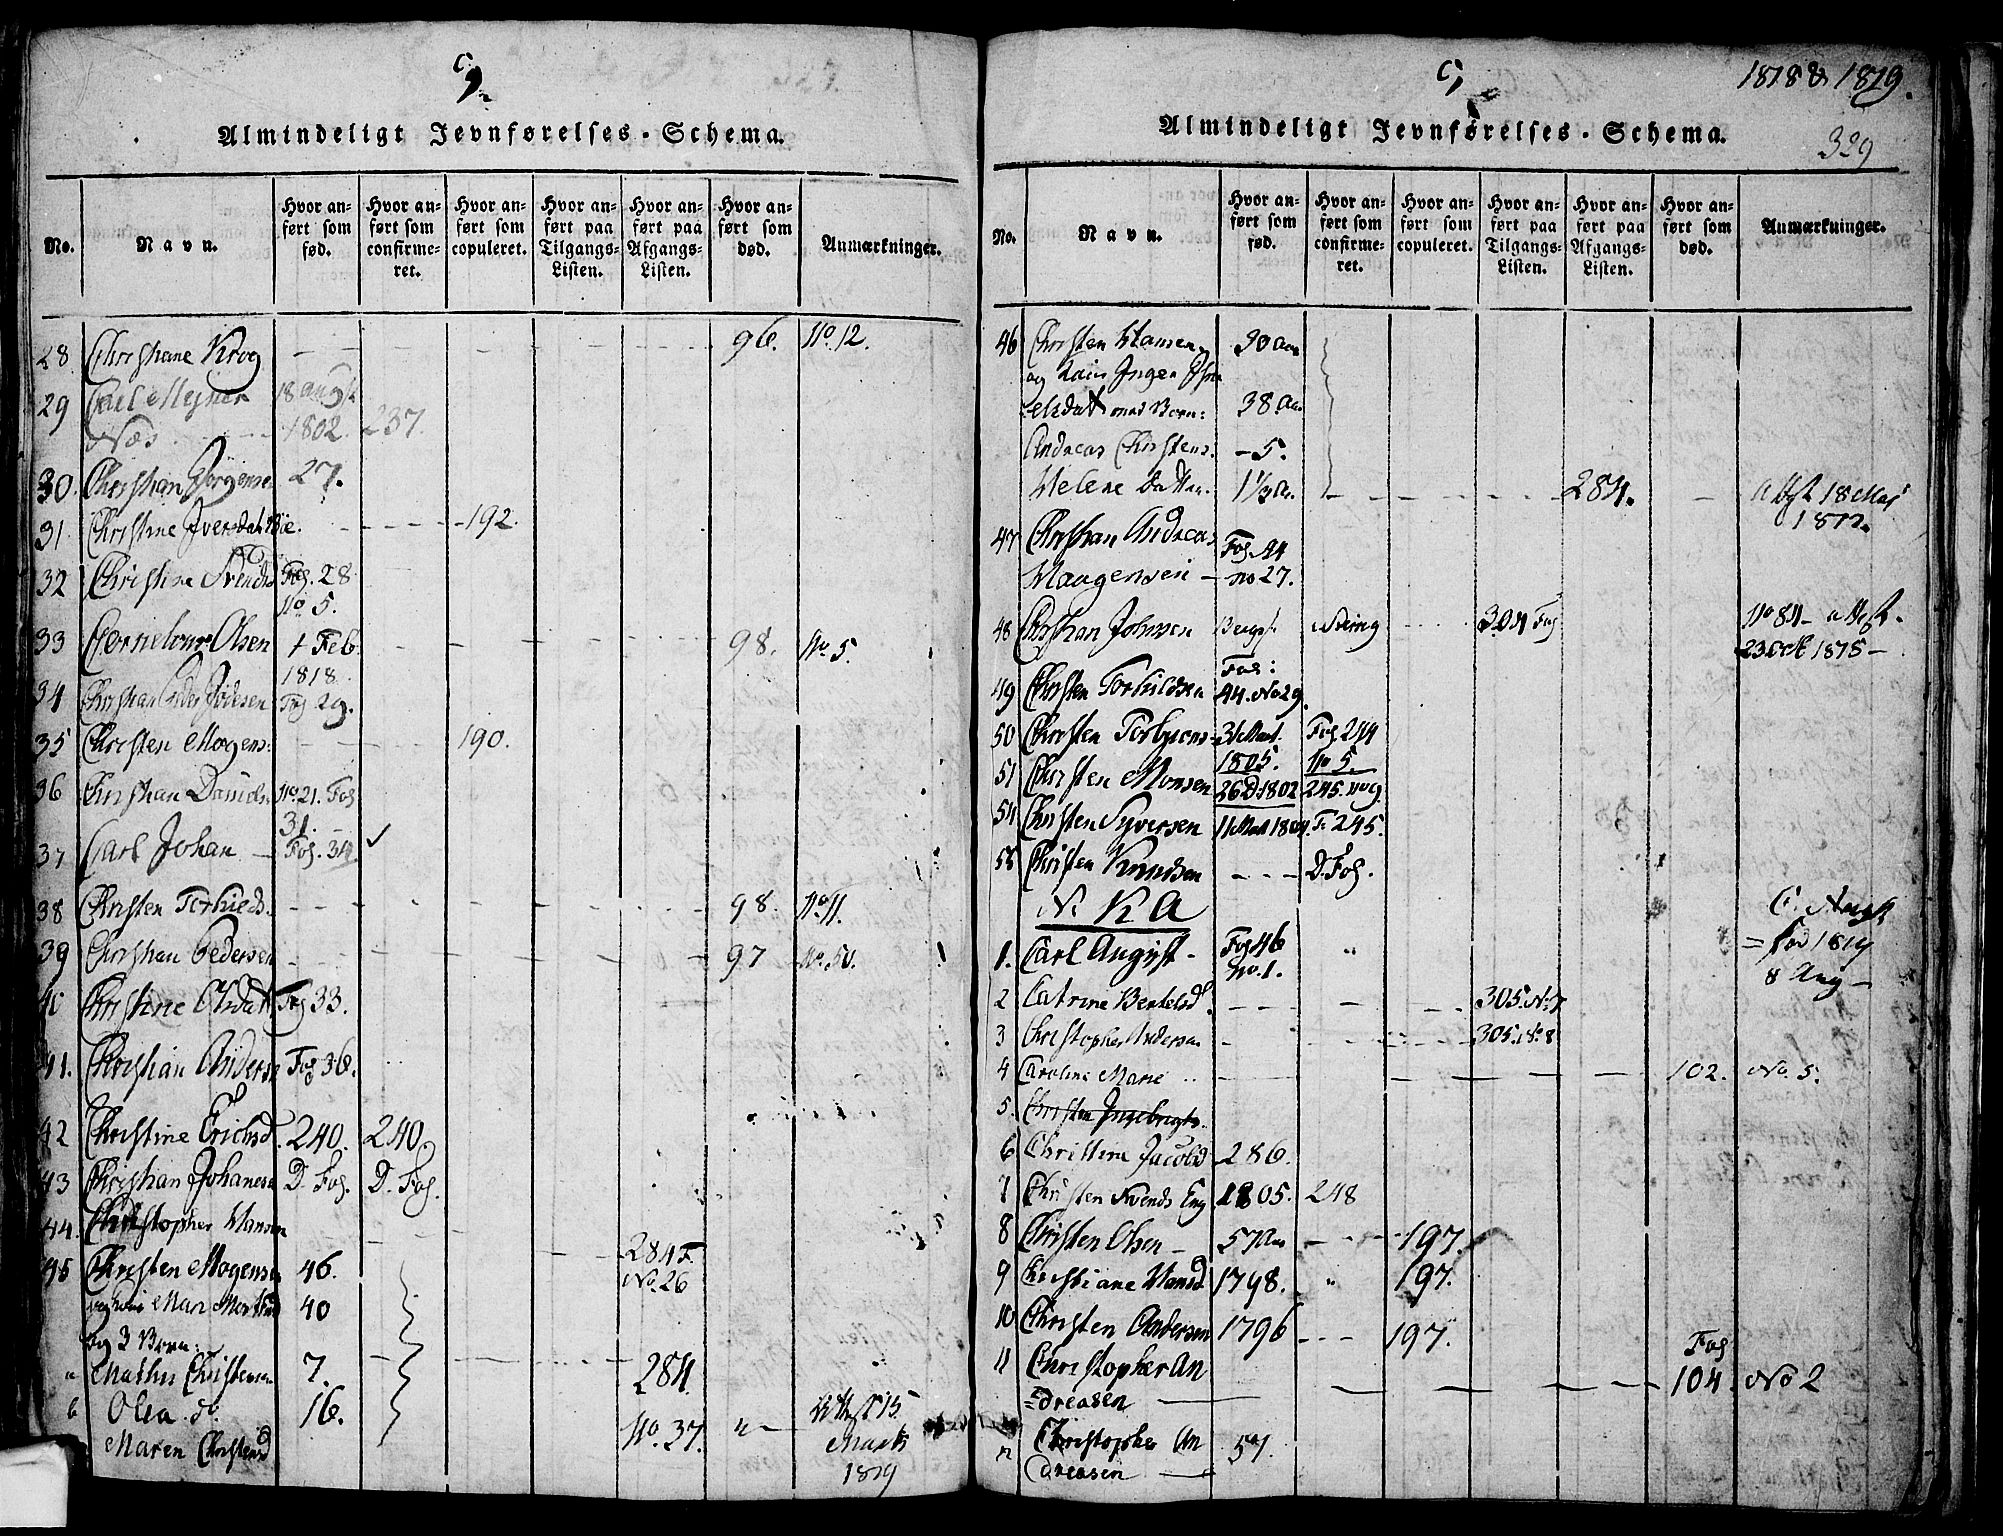 C,
Almindeligt Jevnførelses-Schema.
No.
Navn.
Hvor anført som fød.
Hvor anført som confirmeret.
Hvor anført som copuleret.
Hvor anført paa Tilgangs-Listen.
Hvor anført paa Afgangs-Listen.
Hvor anført som død.
Anmærkninger.
28 Christiane Krog 96. No. 12.
29 Carl Mejner 18 Augst
Næs 1802. 237.
30. Christian Jørgensen 27.
31 Christine Iversdat 192.
32 Christine Svends Fog. 28
No 5.
33 Cornelius Olsen 1 Feb 98. No. 5.
1818.
34 Christian Fog 29.
35 Christen Mogens: 190.
36 Christian Daniels No. 21. Fog
31.
37 Carl Johan Fog. 34
38 Christen Torkields. 98. No. 11.
39 Christian Pedersen 97 No. 50.
40 Christine Olsdatt Fog 33.
41. Christian Anders Fog 36.
42 Christine Erichsd. 240. 240.
43 Christian Johanesen D. Fog. D. Fog.
44. Christopher Hansen
284 F.
No. 26
45 Christen Mogensen 46.
og Mari 40
og 3 Børn:
a Mathis Christensen 7. 284.
b Olea do. 16. No. 37. 15
Maren Christensd Marts
1819
C,
1818 & 1819.
Almindeligt Jevnførelses-Schema.
329
No.
Navn.
Hvor anført som fød.
Hvor anført som confirmeret.
Hvor anført som copuleret.
Hvor anført paa Tilgangs-Listen.
Hvor anført paa Afgangs-Listen.
Hvor anført som død.
Anmærkninger.
46 Christen Hansen 30 Aar
og Inger
med Børn: 38. Aar
Andreas Christens. 5.
Helene Datter. 1 1/2 Ar. 284. 18 Maj
47 Christian Andreas Fog. 44
Haagensen no 27.
48 Christian Johnsen 304 Fog No 84 - attest.
23 Oct 1815
49 Christen Torkildsen Fog:
44. No 29.
50 Christen Torbjørns. 31 Mart. Fog 244
1805. No 5.
51 Christen Monsen 26 D 1802 245. no 9.
54 Christen Syversen 11 Mart 1804. F. 245.
55 Christen Knudsen D. Fog.
N. K A
1. Carl August Fog 46
no. 1.
= fød 1819
8 Aug
2 Catrine Bertelsd. 305. No 7
3 Christopher Andersen 305. No. 8
4 Caroline Marie 102. No. 5.
5. Christen Ingebrigts.
6 Christine Jacobsd 286.
7 Christen Svends Eng 1805. 248
8 Christen Olsen 57 Aar 197.
9 Christiane Hansd 1798. 197.
10 Christen Andersen 1796 197.
11 Christopher An Fog
=dreasen 104. No 2
12 Christopher An 51.
dreasen